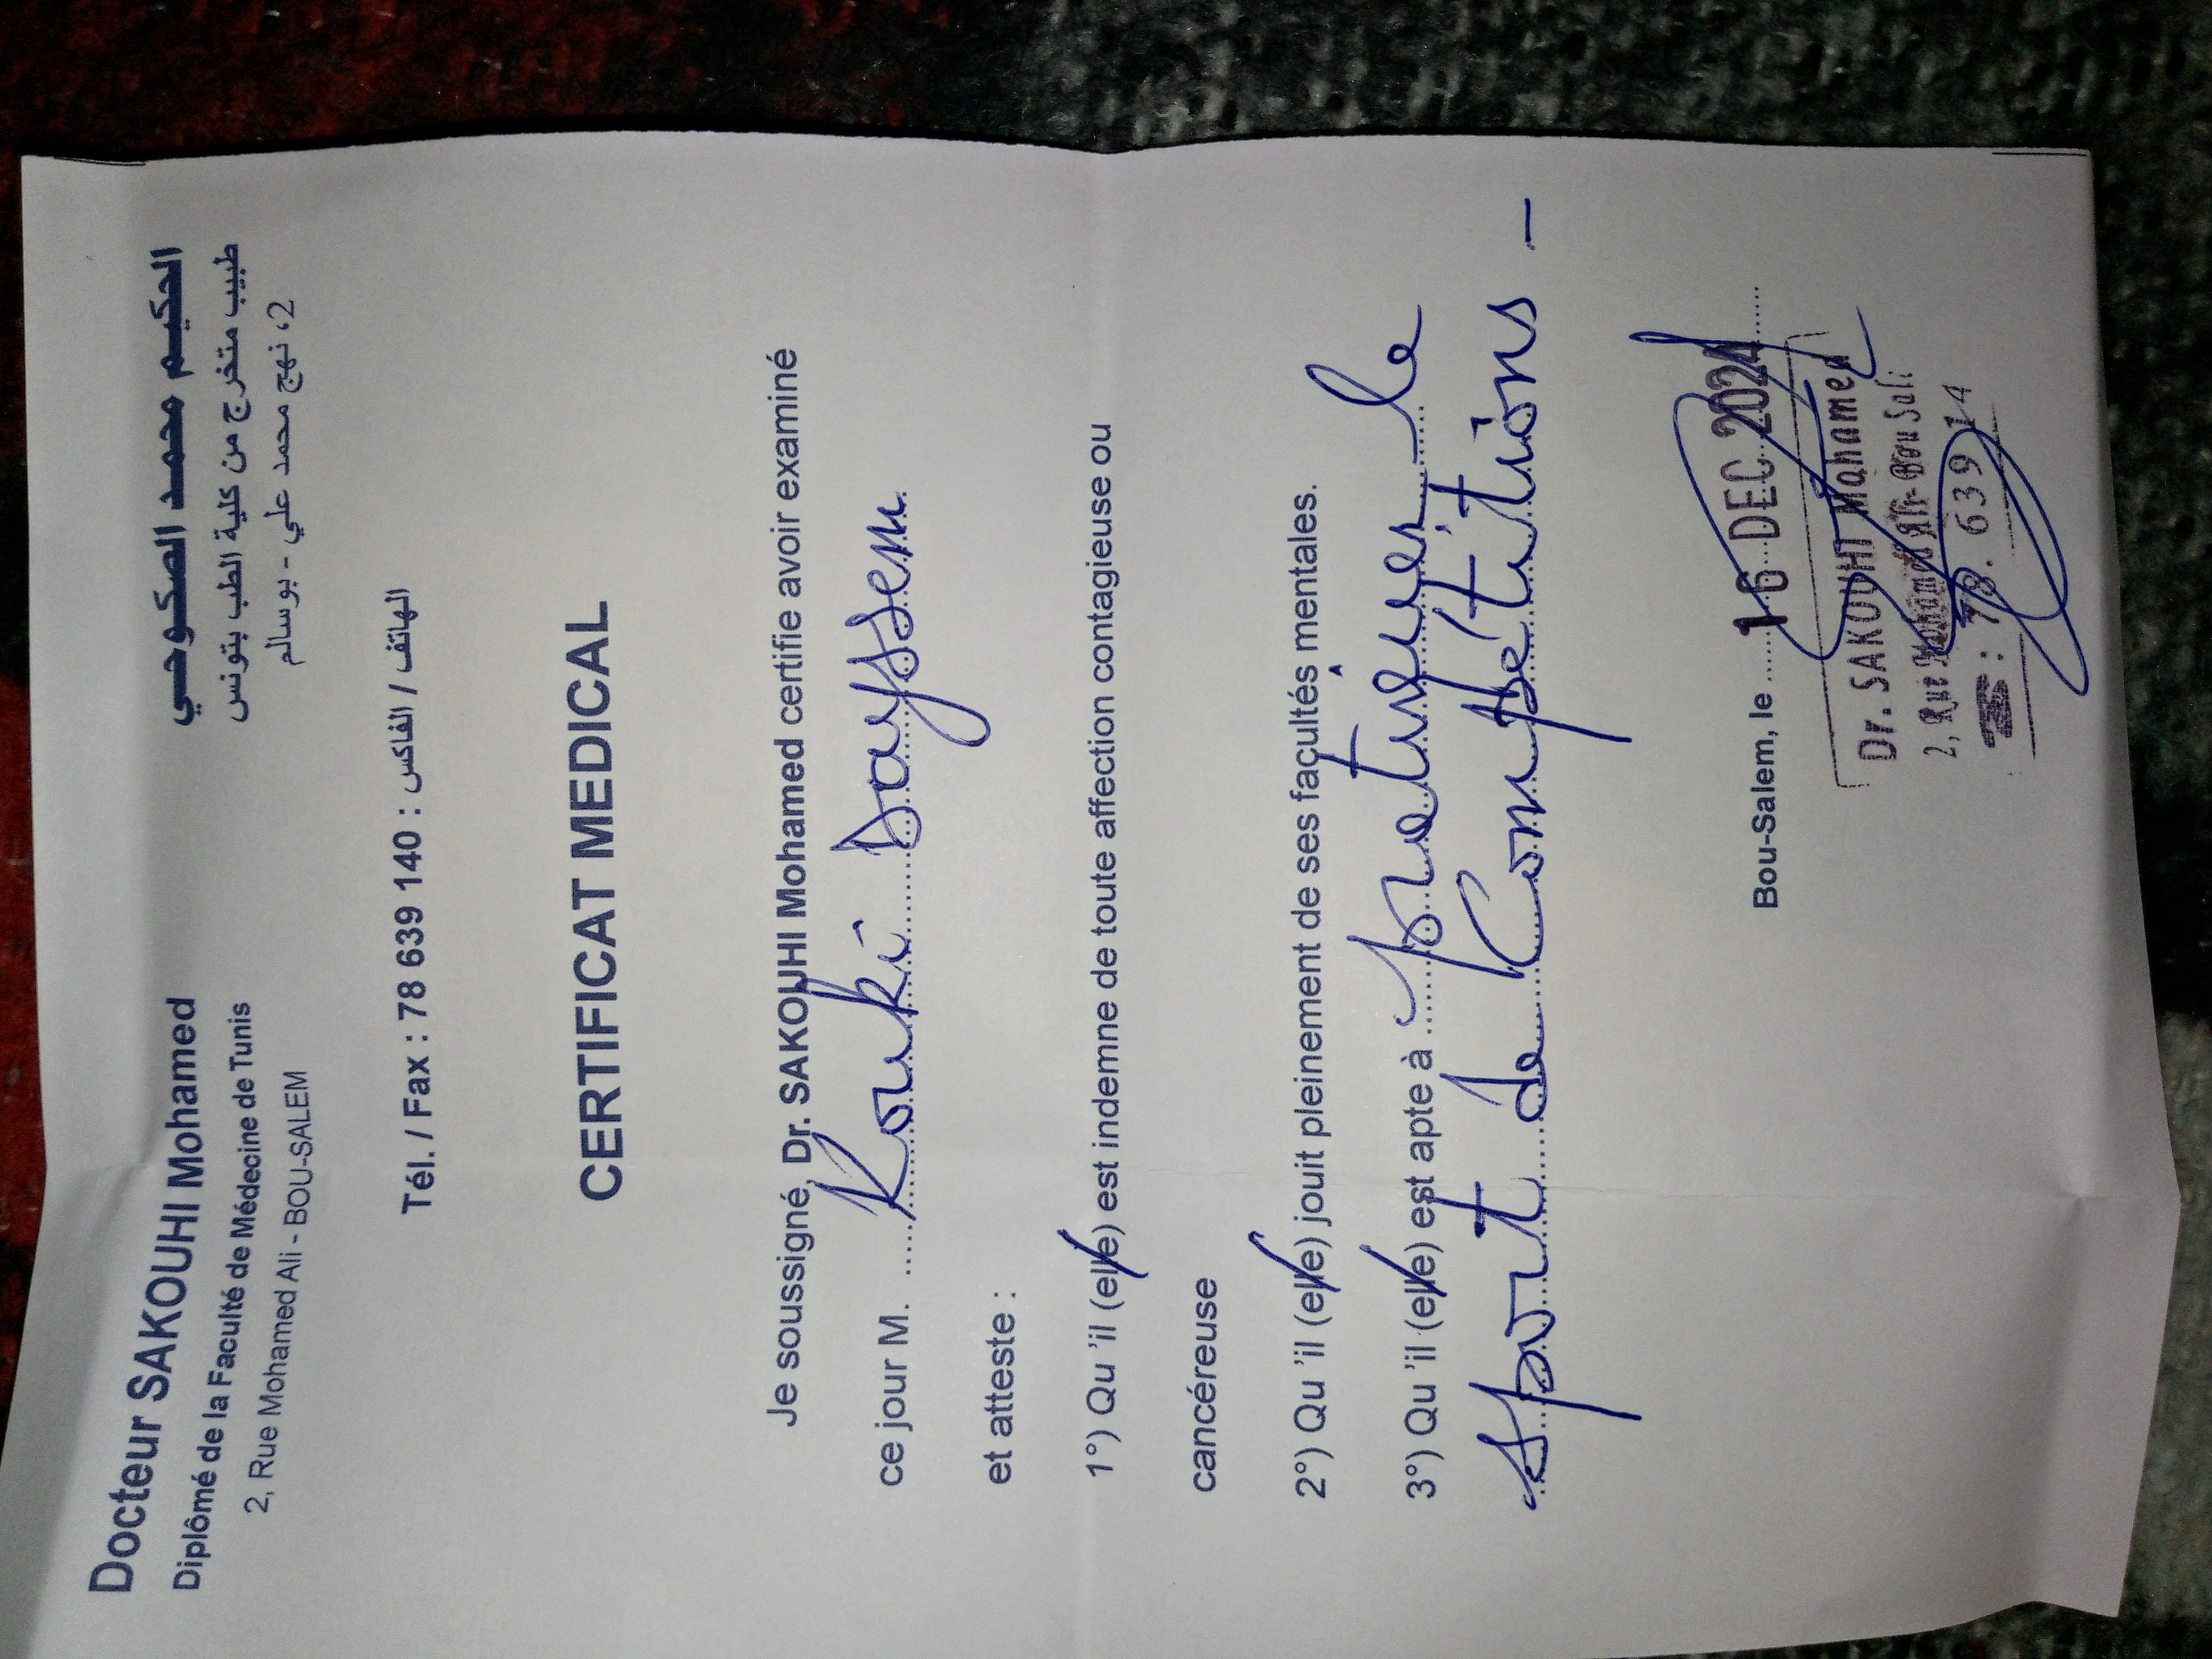 Docteur SAKOUHI Mohamed
Diplômé de la Faculté de Médecine de Tunis
2, Rue Mohamed Ali - BOU-SALEM
الحكيم محمد الصكوحي
طبيب متخرج من كلية الطب بتونس
2، نهج محمد علي - بوسالم
Tél. / Fax : 78 639 140 : الهاتف / الفاكس
CERTIFICAT MEDICAL
Je soussigné, Dr. SAKOUHI Mohamed certifie avoir examiné
ce jour M. Kouki Dayssem
et atteste :
1°) Qu 'il (elle) est indemne de toute affection contagieuse ou
cancéreuse
2°) Qu 'il (elle) jouit pleinement de ses facultés mentales.
3°) Qu 'il (elle) est apte à pratiquer le
sport de Compétitions -
Bou-Salem, le 16 DEC 2024
Dr. SAKOUHI Mohamed
2, Rue Mohamed Ali-Bou Sali
: 78. 639 14